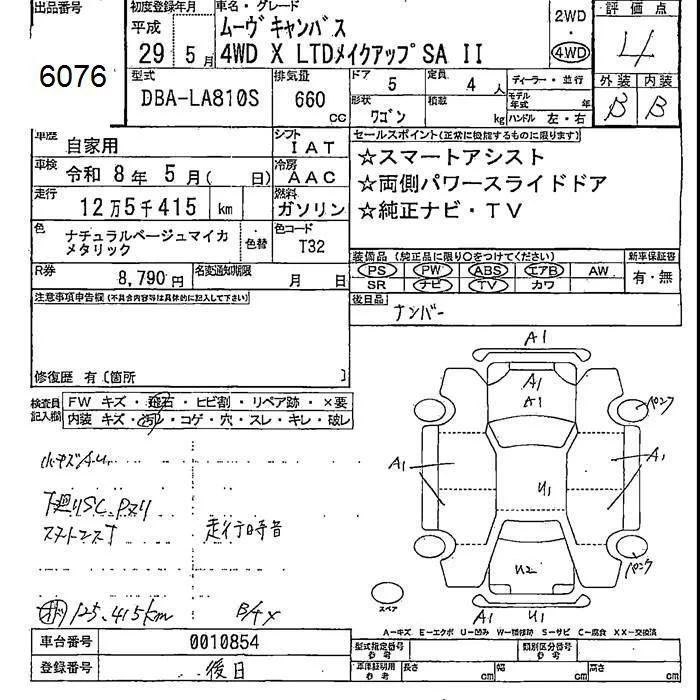 出品番号
6076
初度登録年月
平成
29 5月
車名・グレード
ムーヴキャンバス
4WD X LTDメイクアップSA II
2WD
・
4WD
評価点
4
外装 内装
B B
型式
DBA-LA810S
排気量
660
CC
ドア
5
定員
4 人
形状
ワゴン
積載
kg
ディーラー・並行
モデル年式 年
ハンドル 左・右
車歴
自家用
シフト
IAT
車検
令和 8年 5月( 日)
冷房
AAC
走行
12万5千415 km
燃料
ガソリン
色
ナチュラルベージュマイカ
メタリック
・色替
色コード
T32
R券
8,790円
名変通知期限
月 日
セールスポイント(正常に機能するものに限ります)
☆スマートアシスト
☆両側パワースライドドア
☆純正ナビ・TV
装備品 (純正品に限り○をつけてください)
PS PW ABS エアB AW
SR ナビ TV カワ
新車保証書
有・無
後日品
ナンバー
注意事項申告欄(不具合内容等は具体的に記入して下さい)
修復歴 有〔箇所 〕
検査員
記入欄
FW キズ・飛石・ヒビ割・リペア跡・×要
内装 キズ・汚レ・コゲ・穴・スレ・キレ・破レ
小キズA.U
下廻りSC.Pスリ
走行時音
125,415km
A1
A1
A1
A1
A1
U1
U2
A1 U1
パンク
パンク
スペア
A—キズ E—エクボ U—凹み W—補修跡 S—サビ C—腐食 XX—交換済
車台番号
0010854
登録番号
後日
型式指定番号
参考
類別区分番号
参考
車庫証明用
参考
長さ cm 幅 cm 高さ cm